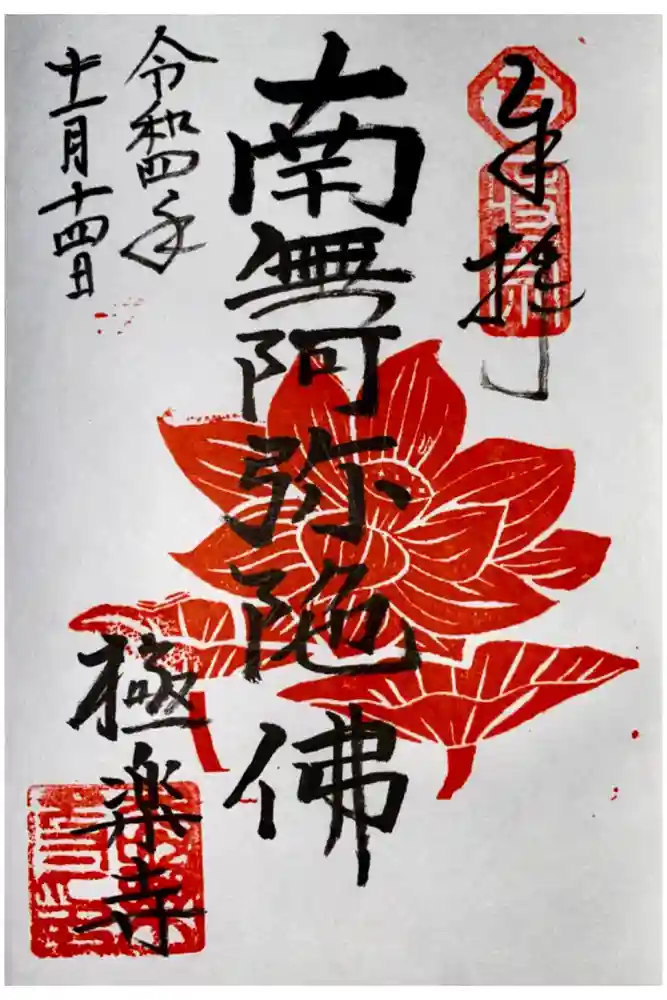 奉拝
南無阿弥陀佛
令和四年
十二月十四日
極楽寺